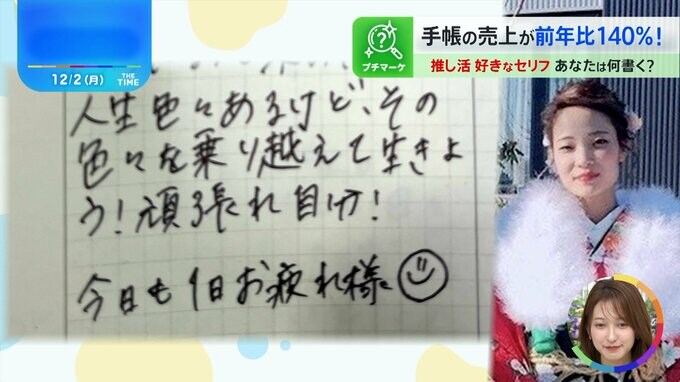 12/2(月)
THE TIME
プチマーケ
手帳の売上が前年比140%!
推し活 好きなセリフ あなたは何書く?
人生色々あるけど、その
色々を乗り越えて生きよ
う!頑張れ自分!
今日も1日お疲れ様